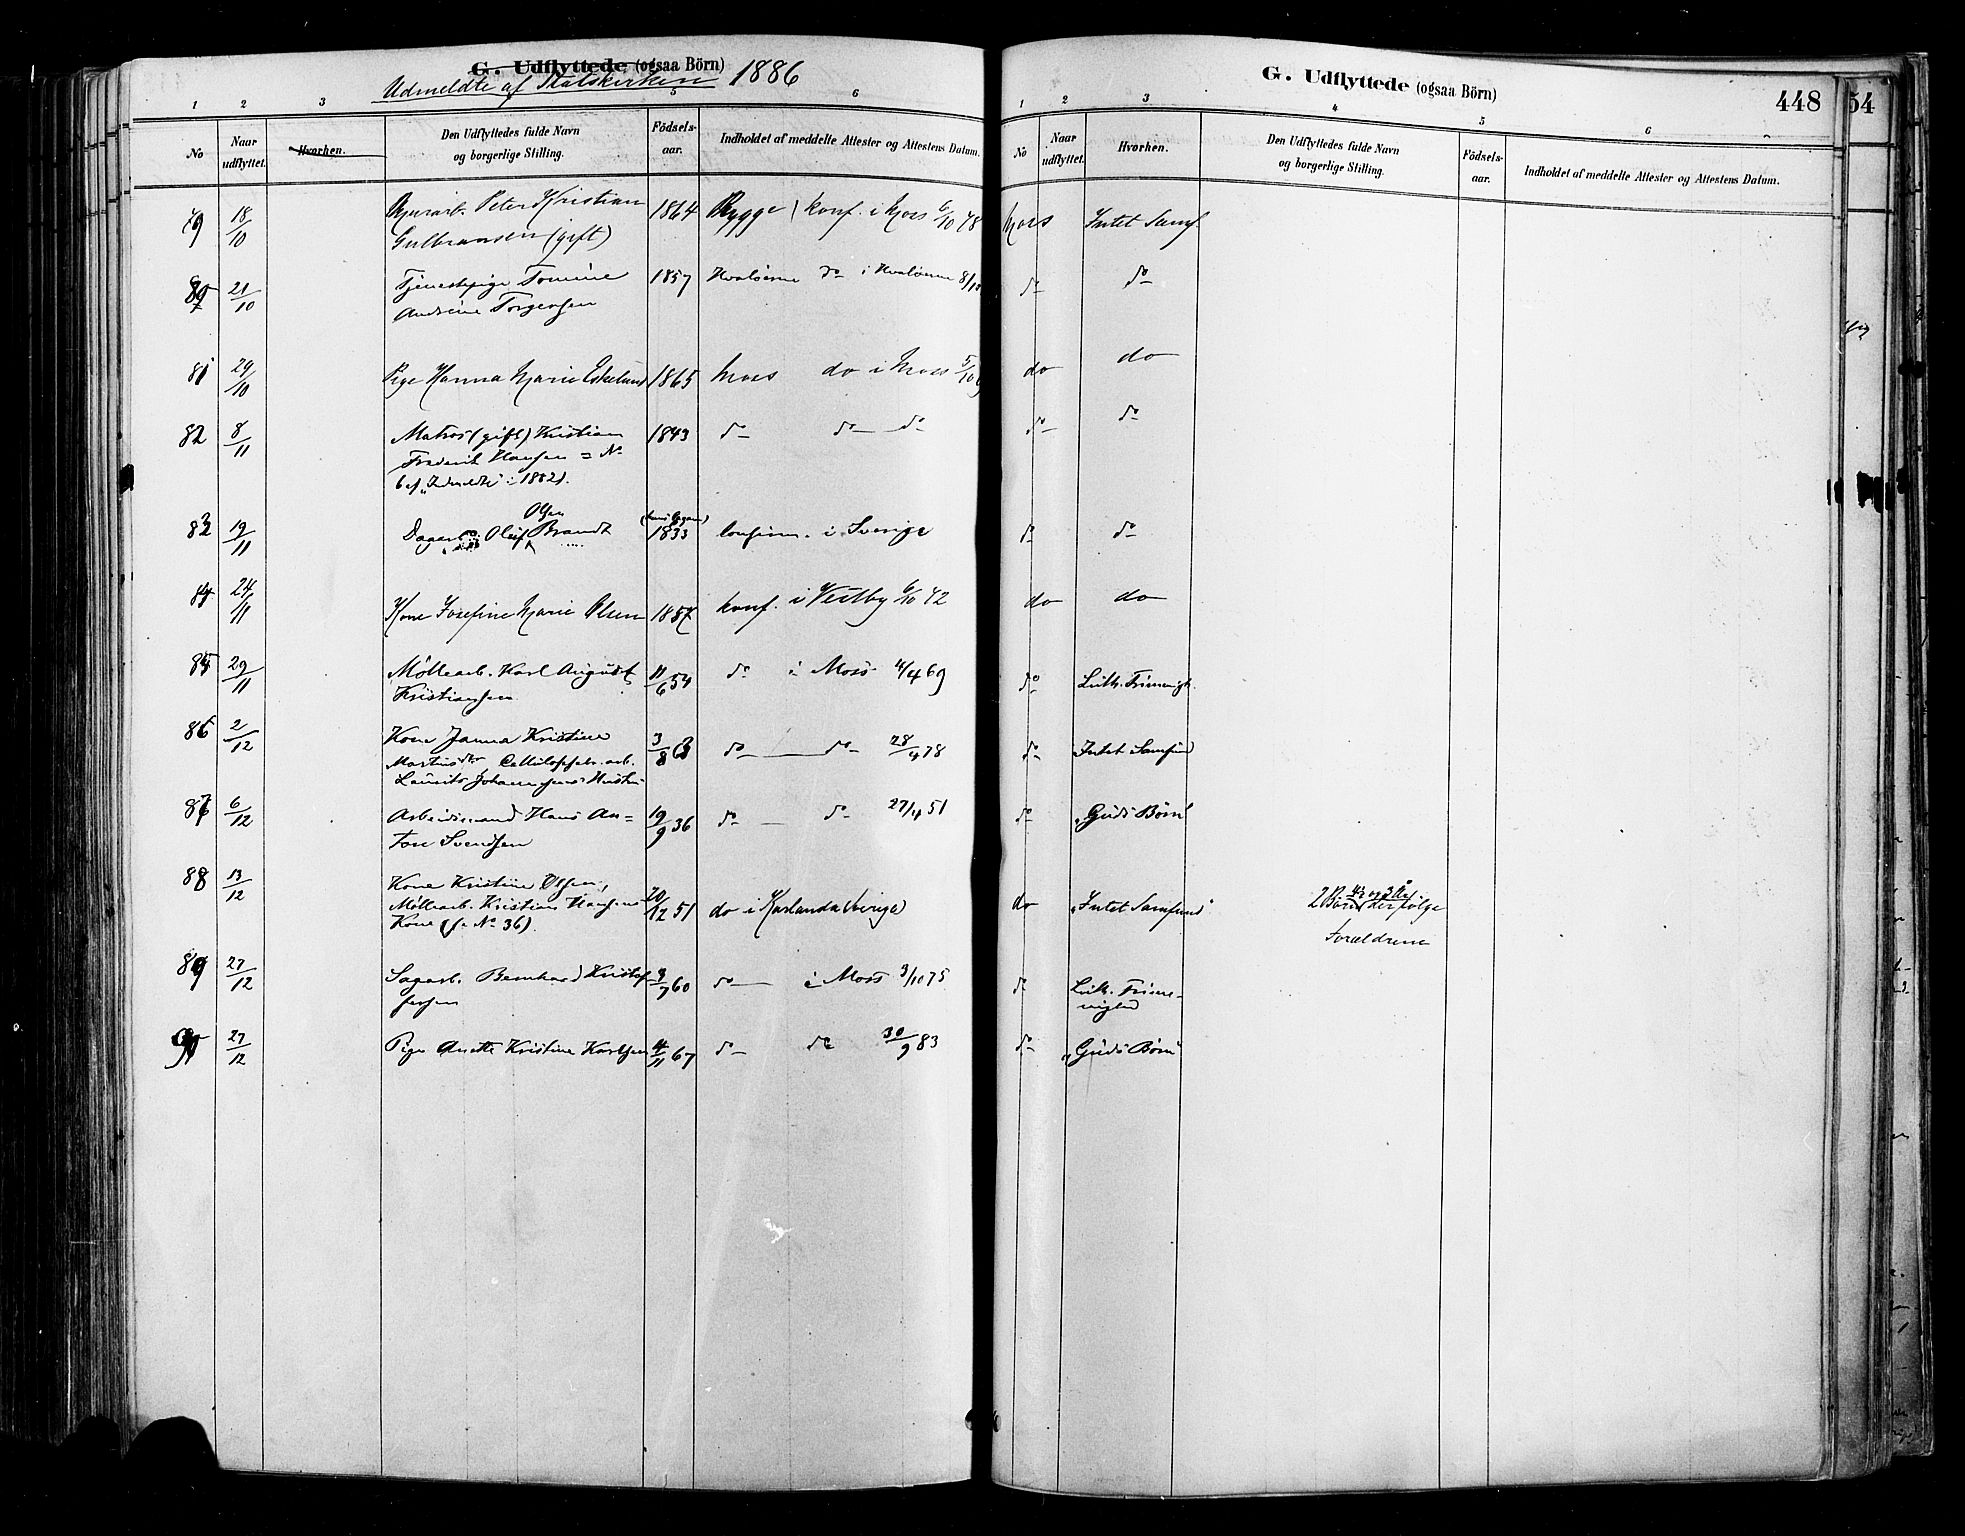 G. Udflyttede (ogsaa Börn)
Udmeldte af Statskirken 1886
1 2 3 5 6
No
Naar udflyttet.
Hvorhen.
Den Udflyttedes fulde Navn og borgerlige Stilling.
Födsels-aar.
Indholdet af meddelte Attester og Attestens Datum.
G. Udflyttede (ogsaa Börn)
448
54
1 2 3 4 5 6
No
Naar udflyttet.
Hvorhen.
Den Udflyttedes fulde Navn og borgerlige Stilling.
Födsels-aar.
Indholdet af meddelte Attester og Attestens Datum.
79 18/10 Peter Kristian 1864 Rygge konf. i Moss 6/10 78 Moss Intet Samf.
Gulbransen (gift)
80 21/10 Tjenestepige Tomine 1857 Hvalöerne do i Hvaløerne do do
Andrine Torgersen
81 29/10 Pige Hanna Marie Eskelund 1865 Moss do i Moss do do
82 8/11 Matros (gift) Kristian 1843 do do do do do
Frederik Hansen = No
6 af "Indmeldte" i 1882).
83 19/11 Olsen Brandt 1833 i Sverige do do
84 24/11 Kone Josefine Marie Olsen 1857 konf. i Vestby 6/10 72 do do
85 29/11 Møllearb. Karl August 11/6 54 do i Moss 4/4 69 do Luth. Frimenigh.
Kristiansen
86 2/12 Kone Janna Kristine 3/8 63 do do 28/4 78 do Intet Samfund
Laurits Johannesens Hustru
87 6/12 Arbeidsmand Hans An= 19/9 36 do do 27/4 51 do "Guds Børn"
ton Svendsen
88 13/12 Kone Kristine Olsen,
Møllearb. Kristian Hansens 20/12 51 do i Karlanda (Sverige) do "Intet Samfund" 2 Børn 4½ og 3 Aar der følge
Kone (se No 36).
Forældrene
89 27/12 Sagarb. Bernhard Kristof 3/7 60 do i Moss 3/10 75 do Luth. Frime-
fersen
nighed
90 27/12 Pige Anette Kristine Karlsen 4/11 67 do do 30/9 83 do "Guds Børn"